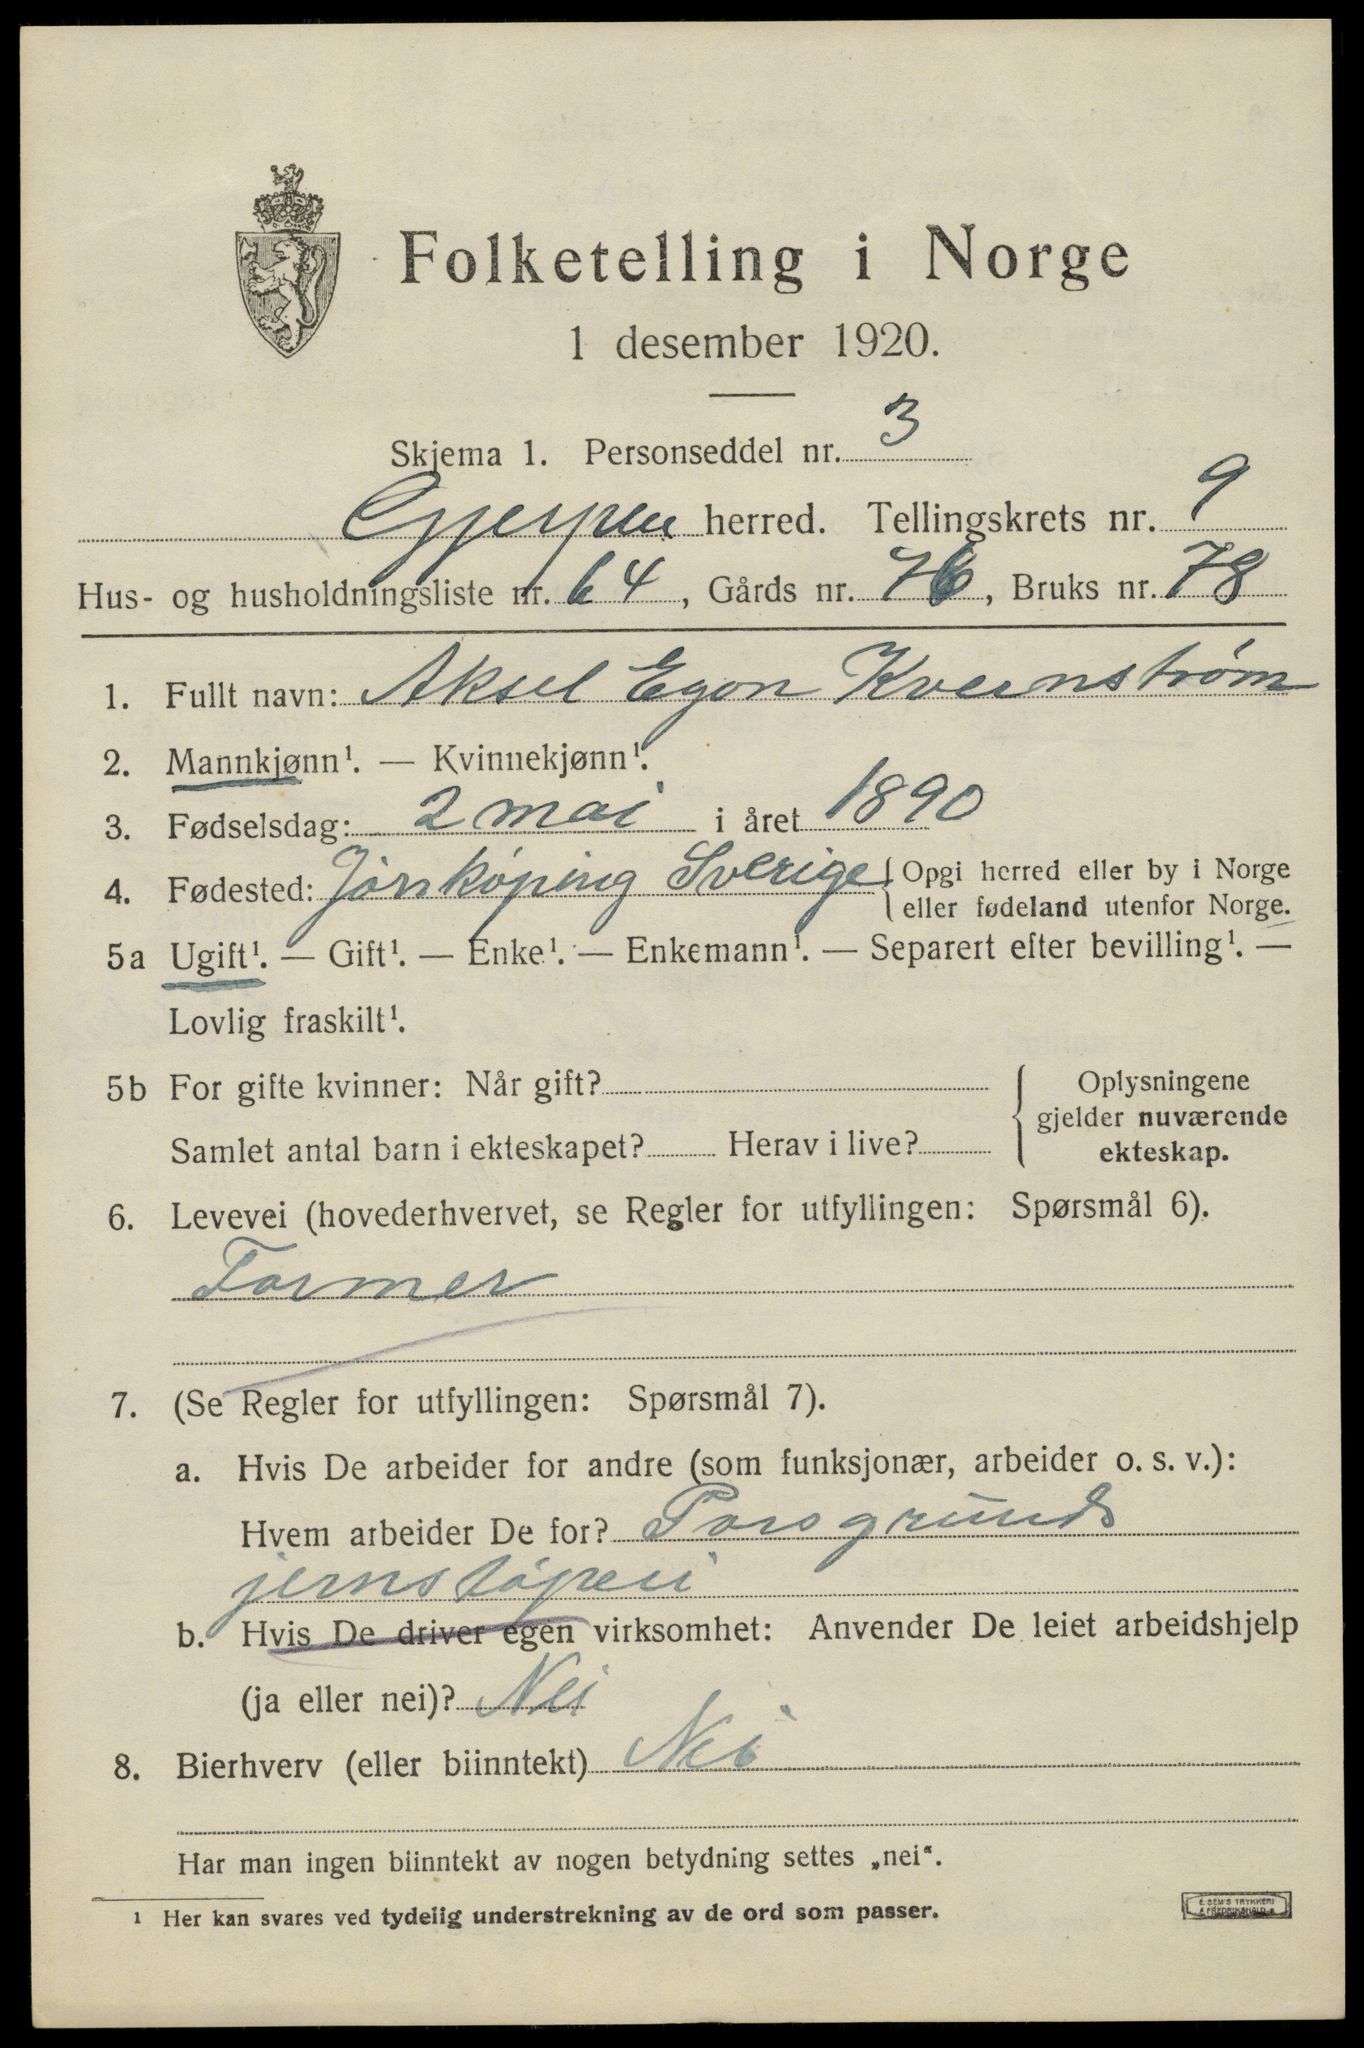 Folketelling i Norge
1 desember 1920.
Skjema 1. Personseddel nr. 3
Gjerpen herred. Tellingskrets nr. 9
Hus- og husholdningsliste nr. 64, Gårds nr. 76, Bruks nr. 78
1. Fullt navn: Aksel Egon Kvernstrøm
2. Mannkjønn¹. — Kvinnekjønn¹.
3. Fødselsdag: 2 mai i året 1890
4. Fødested: Jönköping Sverige { Opgi herred eller by i Norge
eller fødeland utenfor Norge.
5a Ugift¹. — Gift¹. — Enke¹. — Enkemann¹. — Separert efter bevilling¹. —
Lovlig fraskilt¹.
5b For gifte kvinner: Når gift? { Oplysningene
gjelder nuværende
Samlet antal barn i ekteskapet? Herav i live? ekteskap.
6. Levevei (hovederhvervet, se Regler for utfyllingen: Spørsmål 6).
Former
7. (Se Regler for utfyllingen: Spørsmål 7).
a. Hvis De arbeider for andre (som funksjonær, arbeider o. s. v.):
Hvem arbeider De for? Porsgrunds
jernstøperi
b. Hvis De driver egen virksomhet: Anvender De leiet arbeidshjelp
(ja eller nei)? Nei
8. Bierhverv (eller biinntekt) Nei
Har man ingen biinntekt av nogen betydning settes „nei“.
¹ Her kan svares ved tydelig understrekning av de ord som passer.
E. SEM'S TRYKKERI
FREDRIKSHALD